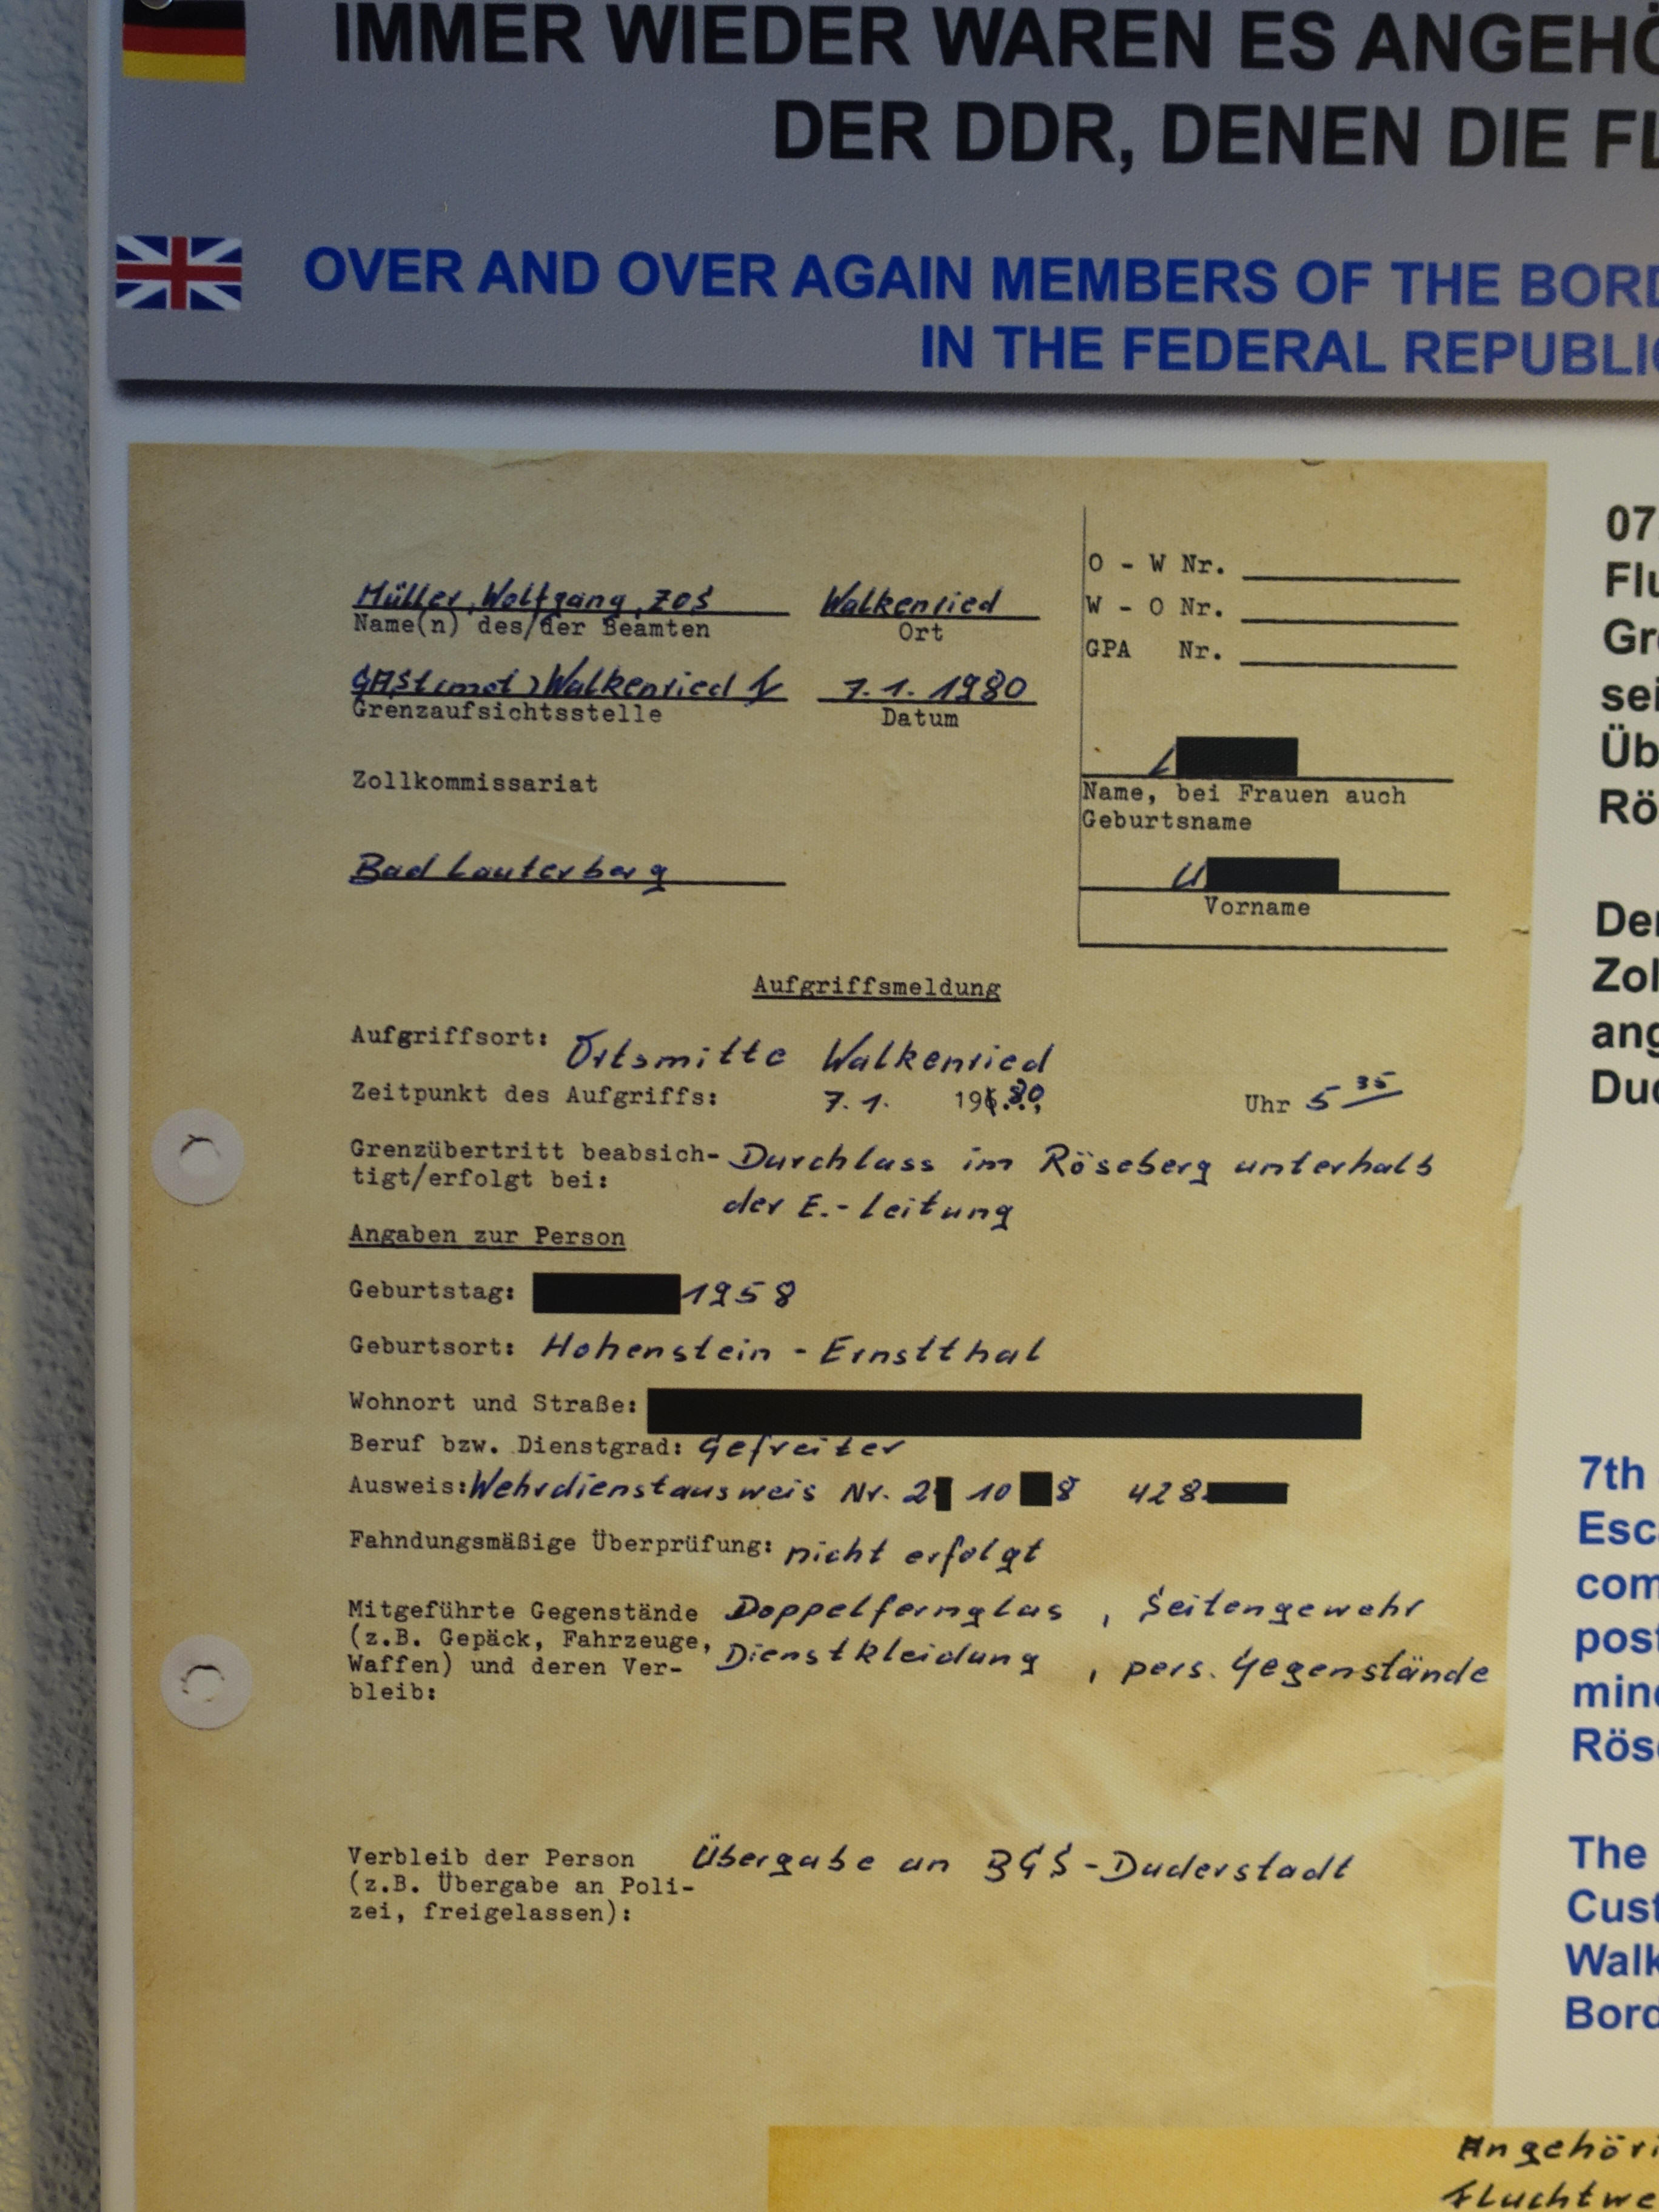 IMMER WIEDER WAREN ES ANGEHÖ
DER DDR, DENEN DIE FL
OVER AND OVER AGAIN MEMBERS OF THE BORD
IN THE FEDERAL REPUBLIC
O - W Nr.
W - O Nr.
GPA Nr.
Müller, Wolfgang, ZOS Walkenried
Name(n) des/der Beamten Ort
GASt (mot) Walkenried 7.1.1980
Grenzaufsichtsstelle Datum
Zollkommissariat
Name, bei Frauen auch
Geburtsname
Bad Lauterberg
U
Vorname
Aufgriffsmeldung
Aufgriffsort: Ortsmitte Walkenried
Zeitpunkt des Aufgriffs: 7.1. 1980 Uhr 5 35
Grenzübertritt beabsich- Durchlass im Röseberg unterhalb
tigt/erfolgt bei: der E.-Leitung
Angaben zur Person
Geburtstag: 1958
Geburtsort: Hohenstein - Ernstthal
Wohnort und Straße:
Beruf bzw. Dienstgrad: Gefreiter
Ausweis: Wehrdienstausweis Nr. 2 10 8 428
Fahndungsmäßige Überprüfung: nicht erfolgt
Mitgeführte Gegenstände Doppelfernglas, Seitengewehr
(z.B. Gepäck, Fahrzeuge, Dienstkleidung, pers. Gegenstände
Waffen) und deren Ver-
bleib:
Verbleib der Person Übergabe an BGS-Duderstadt
(z.B. Übergabe an Poli-
zei, freigelassen):
07
Flu
Gre
sei
Üb
Rö
Der
Zol
ang
Dud
7th
Esc
com
post
mine
Röse
The
Cust
Walk
Bord
Angehöri
Fluchtwe